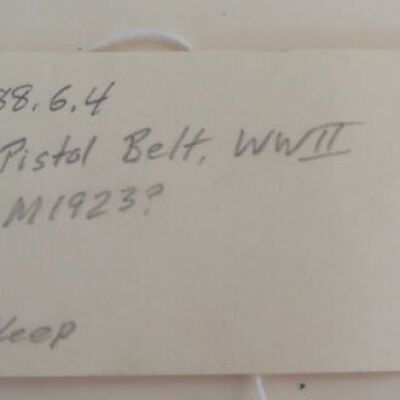 88.6.4
Pistol Belt, WWII
M1923?
Keep